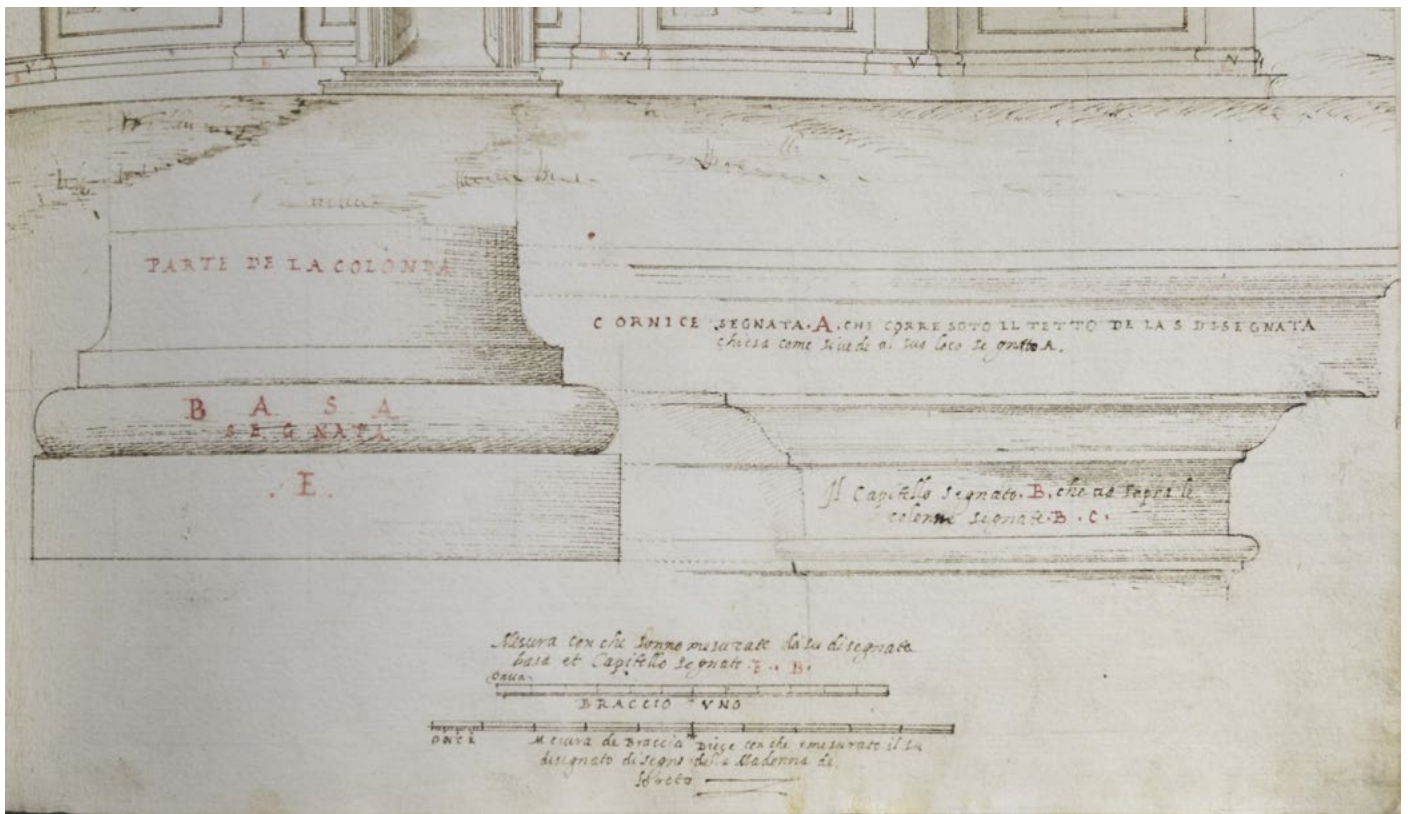 V V V V N
PARTE DE LA COLONDA
CORNICE SEGNATA. A. CHE CORRE SOTO IL TETTO DE LA S DISEGNATA
chiesa come si vede al suo loco segnato A.
BASA
SEGNATA
. E .
Il Capitello segnato. B. che va sopra le
colonne segnate. B. C.
Mesura con che sonno mesurate la su disegnata
basa et Capitello segnate. E. B.
BRACCIO VNO
ONCE
Mesura de Braccia Diece con che mesurato il su
disignato disegno della Madonna di
loreto